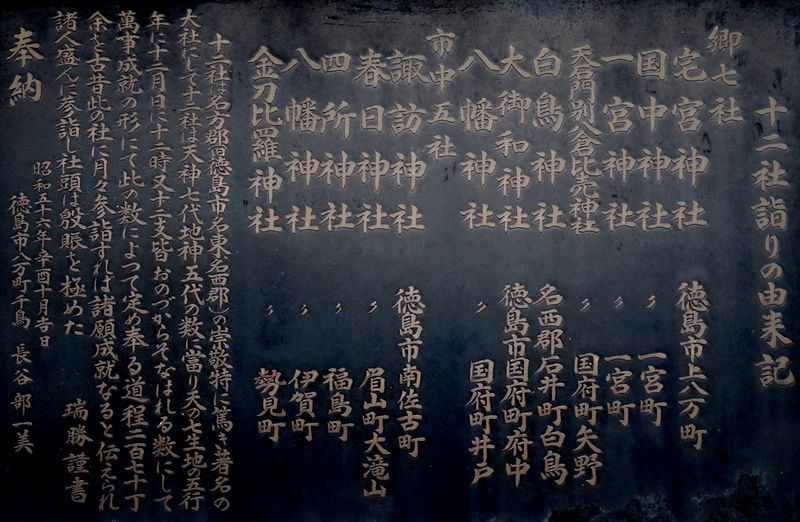 十二社詣りの由来記
郷七社
宅宮神社 徳島市上八万町
国中神社 〃 一宮町
一宮神社 〃 一宮町
天石門別八倉比売神社 〃 国府町矢野
白鳥神社 名西郡石井町白鳥
大御和神社 徳島市国府町府中
八幡神社 〃 国府町井戸
市中五社
諏訪神社 徳島市南佐古町
春日神社 〃 眉山町大滝山
四所神社 〃 福島町
八幡神社 〃 伊賀町
金刀比羅神社 〃 勢見町
十二社は名方郡(旧徳島市名東名西郡)の崇敬特に篤き著名の
大社にして十二社は天神七代地神五代の数に當り天の七生地五行
年に十二月日に十二時又十二支皆おのづからそなはれる数にして
萬事成就の形にて此の数によつて定め奉る道程二百七十丁
余と古昔此の社に月々参詣すれば諸願成就なると伝えられ
諸人盛んに参詣し社頭は殷賑を極めた 瑞勝謹書
昭和五十六年辛酉十月吉日
奉納 徳島市八万町千鳥 長谷部一美